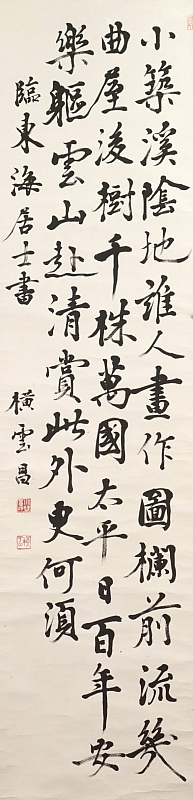 小築溪陰地誰人畫作圖欄前流幾
曲屋後樹千株萬國太平日百年安
樂軀雲山赴清賞此外更何須
臨東海居士書
橫雲昌